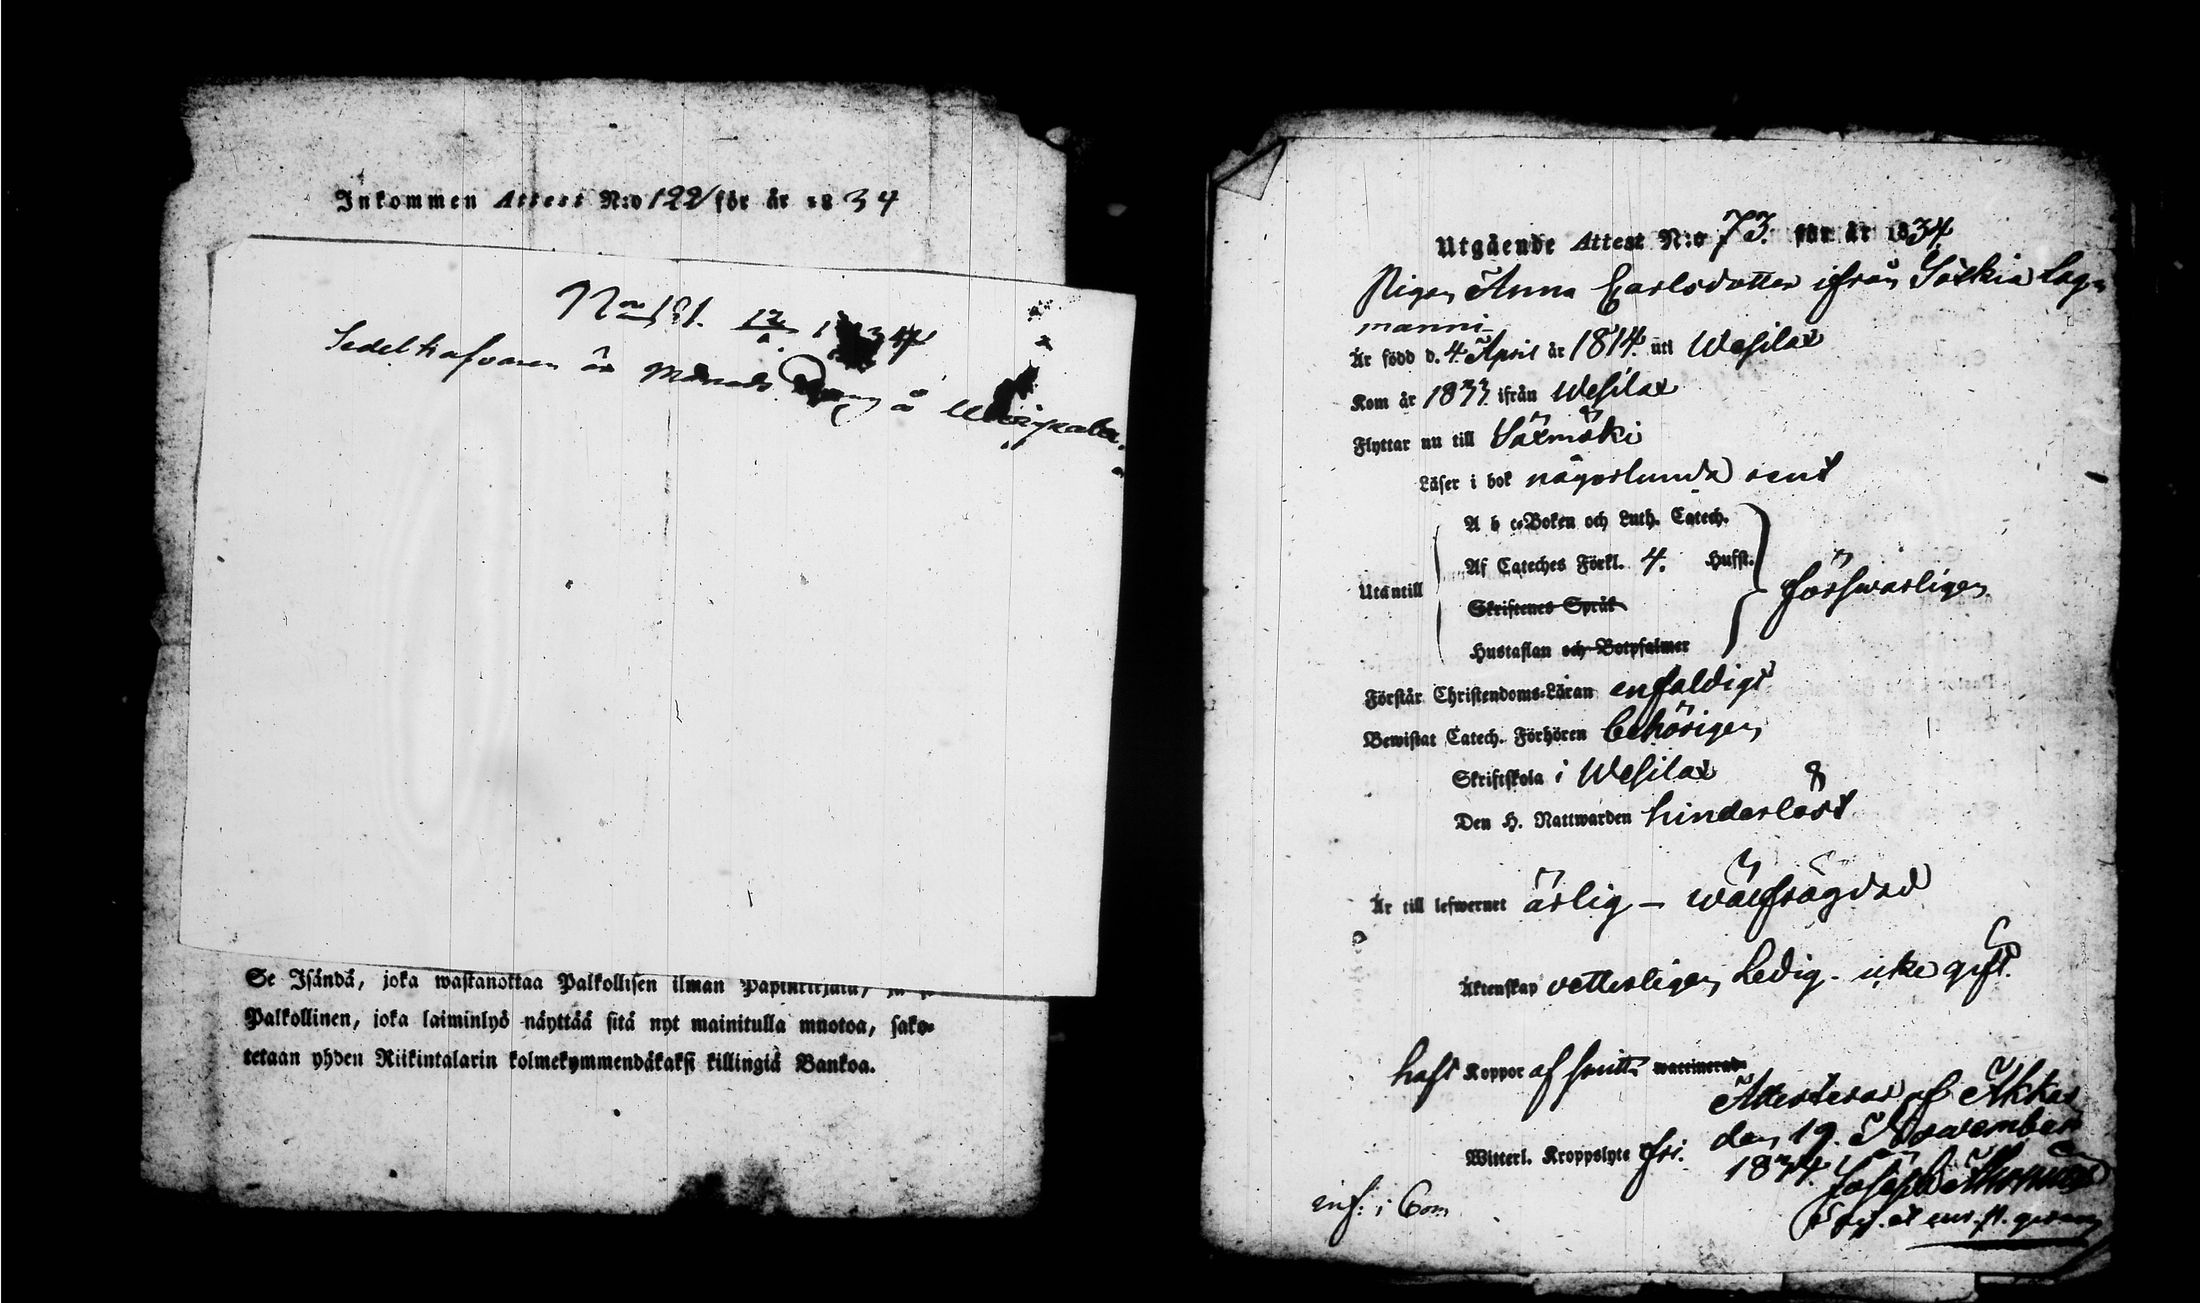 Inkommen Attest N:o 122 för år 1834
N:o 181. 12 1834
Sedelhafvaren är Månads å
Se Isändä, joka wastanottaa Palkollisen ilman
Palkollinen, joka laiminlyö näyttää sitä nyt mainitulla muotoa, sako-
tetaan yhden Riikintalarin kolmekymmendäkaksi killingiä Bankoa.
Utgående Attest N:o 73. för år 1834
Pigan Anna Carlsdotter ifrån
manni
Är född d. 4. April år 1814. uti Wesilax
Kom år 1833 ifrån Wesilax
Flyttar nu till Säxmäki
Läser i bok någorlunda rent
A b c-Boken och Luth. Catech.
Af Cateches Förkl. 4. Hufst.
Utantill försvarligen
Skriftenes Språk
Hustaflan och Botpsalmer
Förstår Christendoms-Läran enfaldigt
Bewistat Catech. Förhören behörigen
Skriftskola i Wesilax
Den H. Nattwarden hinderlöst
Är till lefwernet ärlig - wälfrägdad
Äktenskap vetterligen Ledig - icke gift.
haft Koppor af smitta waccinerad
Attesteras af Akkas
den 19. November
Witterl. Kroppslyte fri.
1834. Joseph
inf: i Com